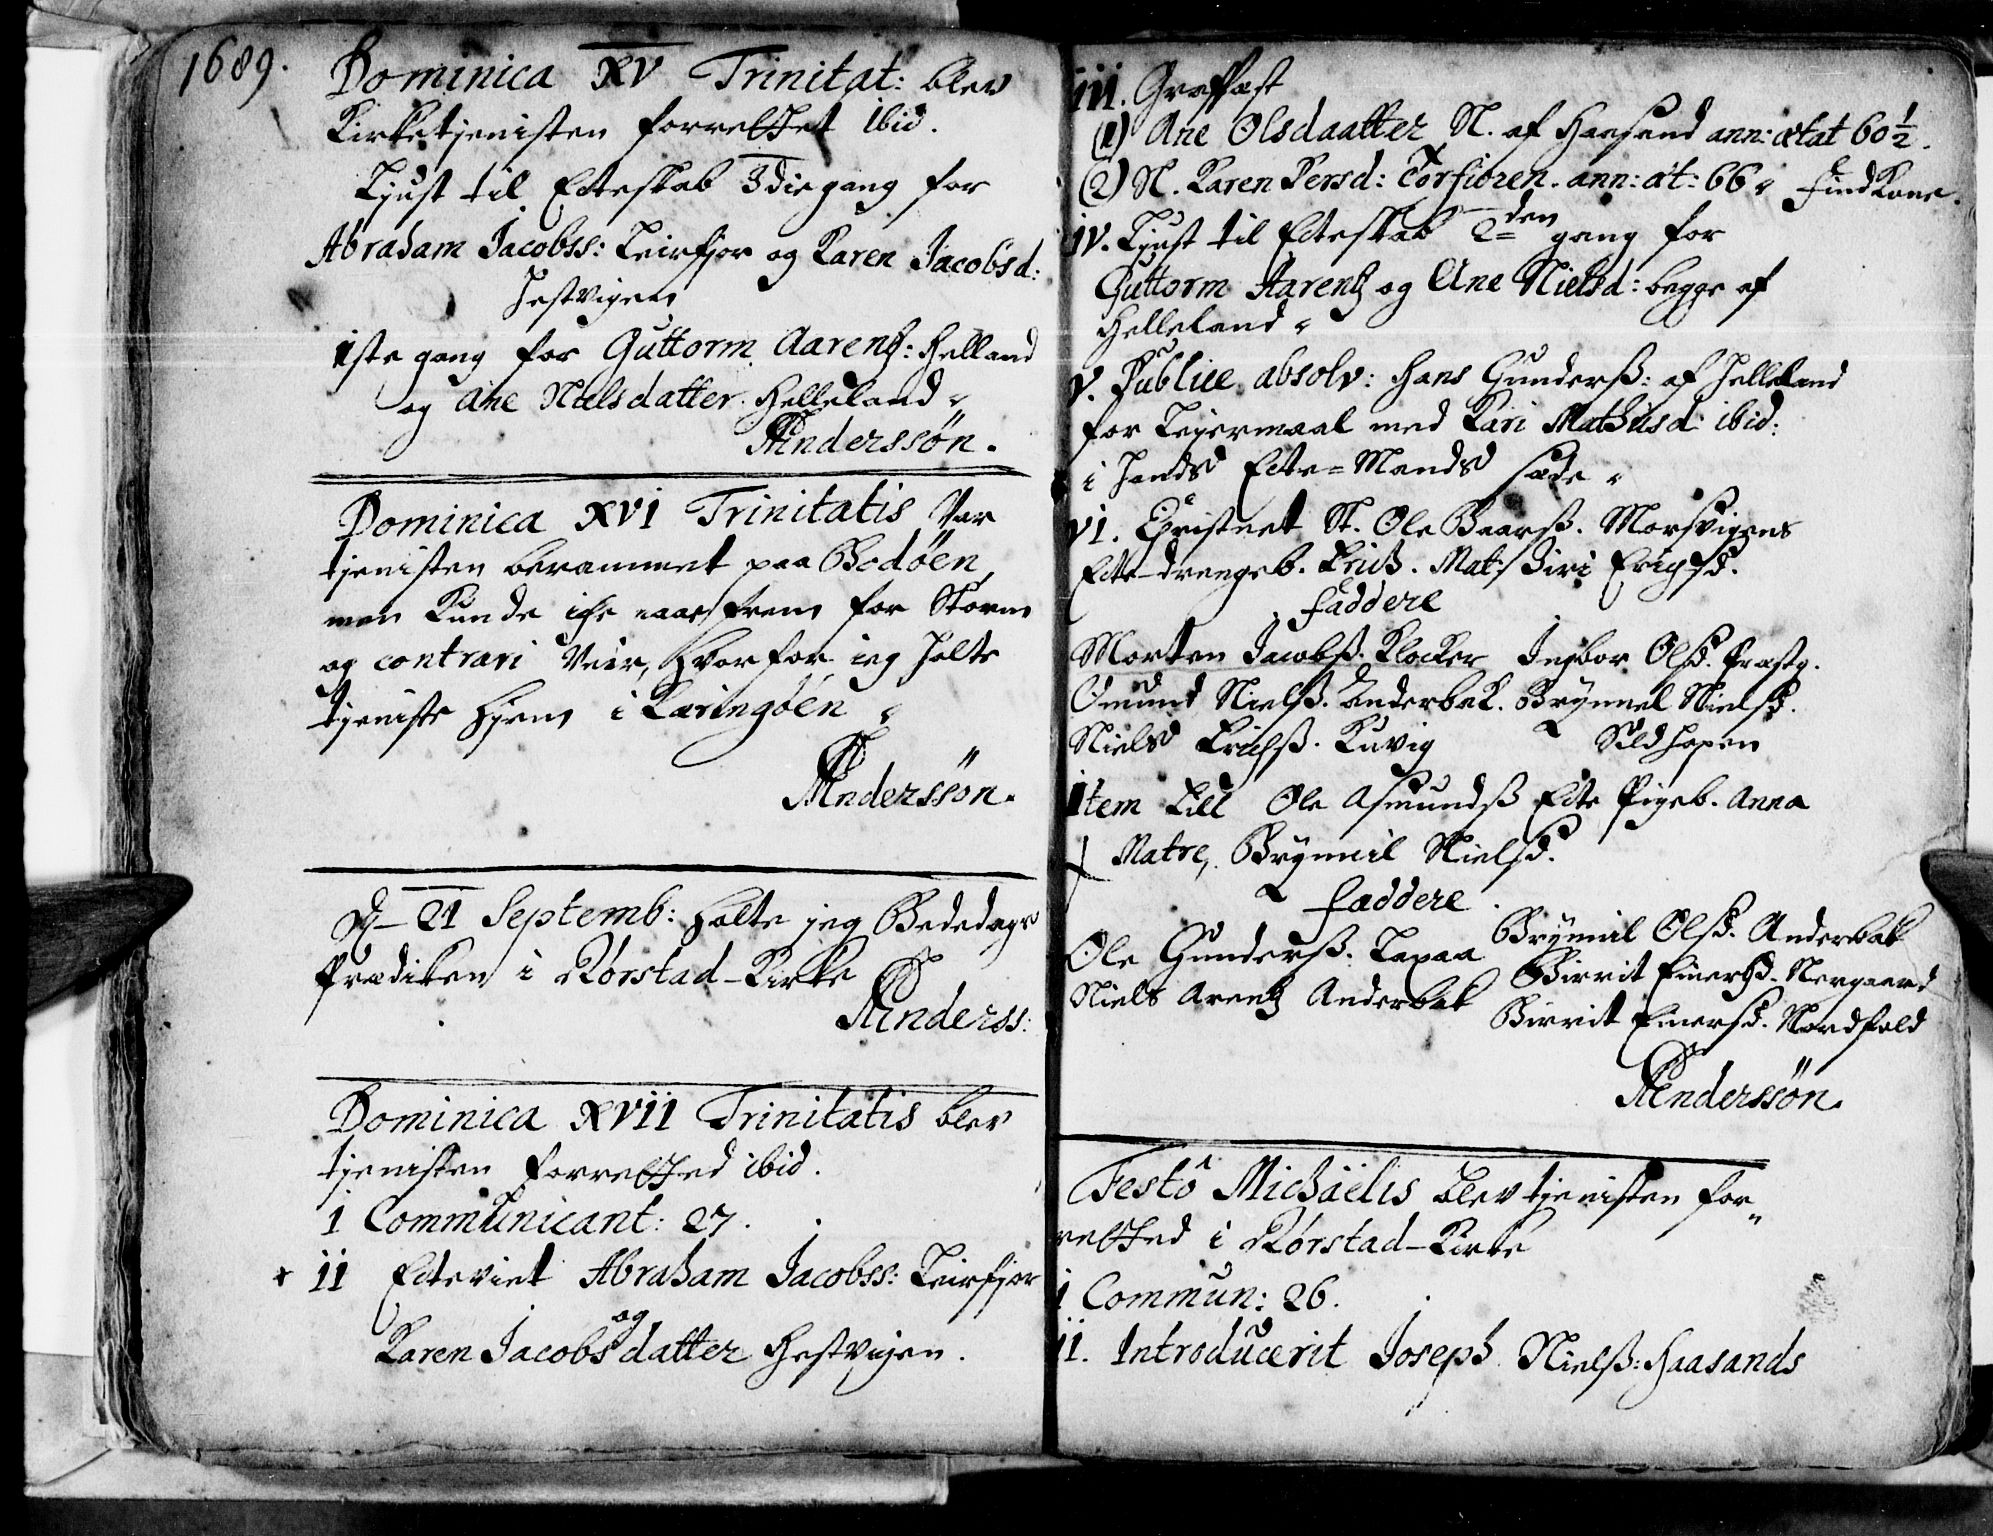 1689.
Dominica XV Trinitat: blev
Kirketjenisten forrettet ibid.
Liust til Ecteskab 3die gang for
Abraham Jacobss: Leirfjor og Karen Jacobsd:
Hestvigen
1ste gang for Guttorm Aarentz: Helland
og Ane Nielsdatter Helleland
Anderssøn.
Dominica XVI Trinitatis Var
tjenisten berammet paa Bodøen,
men Kunde iche naae frem for Storm
og contrari Veir, hvorfor ieg holte
tjeniste hjem i Kæringøen
Anderssøn.
D. 21 Septemb: holte jeg Bededags
Prædiken i Rørstad-Kirke
Anderss:
Dominica XVII Trinitatis blev
tjenisten forretted ibid.
i Communicant: 27.
ii Ecteviet Abraham Jacobss: Leirfjor
og
Karen Jacobsdatter Hestvigen.
iii. Graffæst
(1) Ane Olsdaatter N. af Haasand ann: ætat 60½.
(2) N. Karen Persd: Torfioren. ann: æt: 66. Find Kone.
iv. Liust til Ecteskab 2den gang for
Guttorm Aarentz og Ane Nielsd: begge af
Helleland
v. Publice absolv: Hans Gunderss: af Helleland
for Leyermaal med Kari Mathisd: ibid:
i hands Ecte-Mands sæde
vi. Christnet N. Ole Baarss. Morsvigens
Ecte-drengeb. Mat: Siri Erichsd.
Faddere
Morten Jacobss. Klocker Ingbor Olsd. Præstg.
Omund Nielss. Anderbak. Brynnel Nielsd.
Niels Erichss. Kuvig Sildhopen
Item Lill Ole Asmundss Ecte Pigeb. Anna
Matre, Brynnil Nielsd.
Faddere
Ole Gunderss. Løpaa Brynnil Olsd. Anderbak
Niels Arentz Anderbak Birrit Einersd. Nergaard
Birrit Einersd. Nordfold
Anderssøn.
Festo Michaëlis blev tjenisten for-
retted i Rørstad-Kirke
i Commun: 26.
ii. Introducerit Joseph Nielss: Haasands